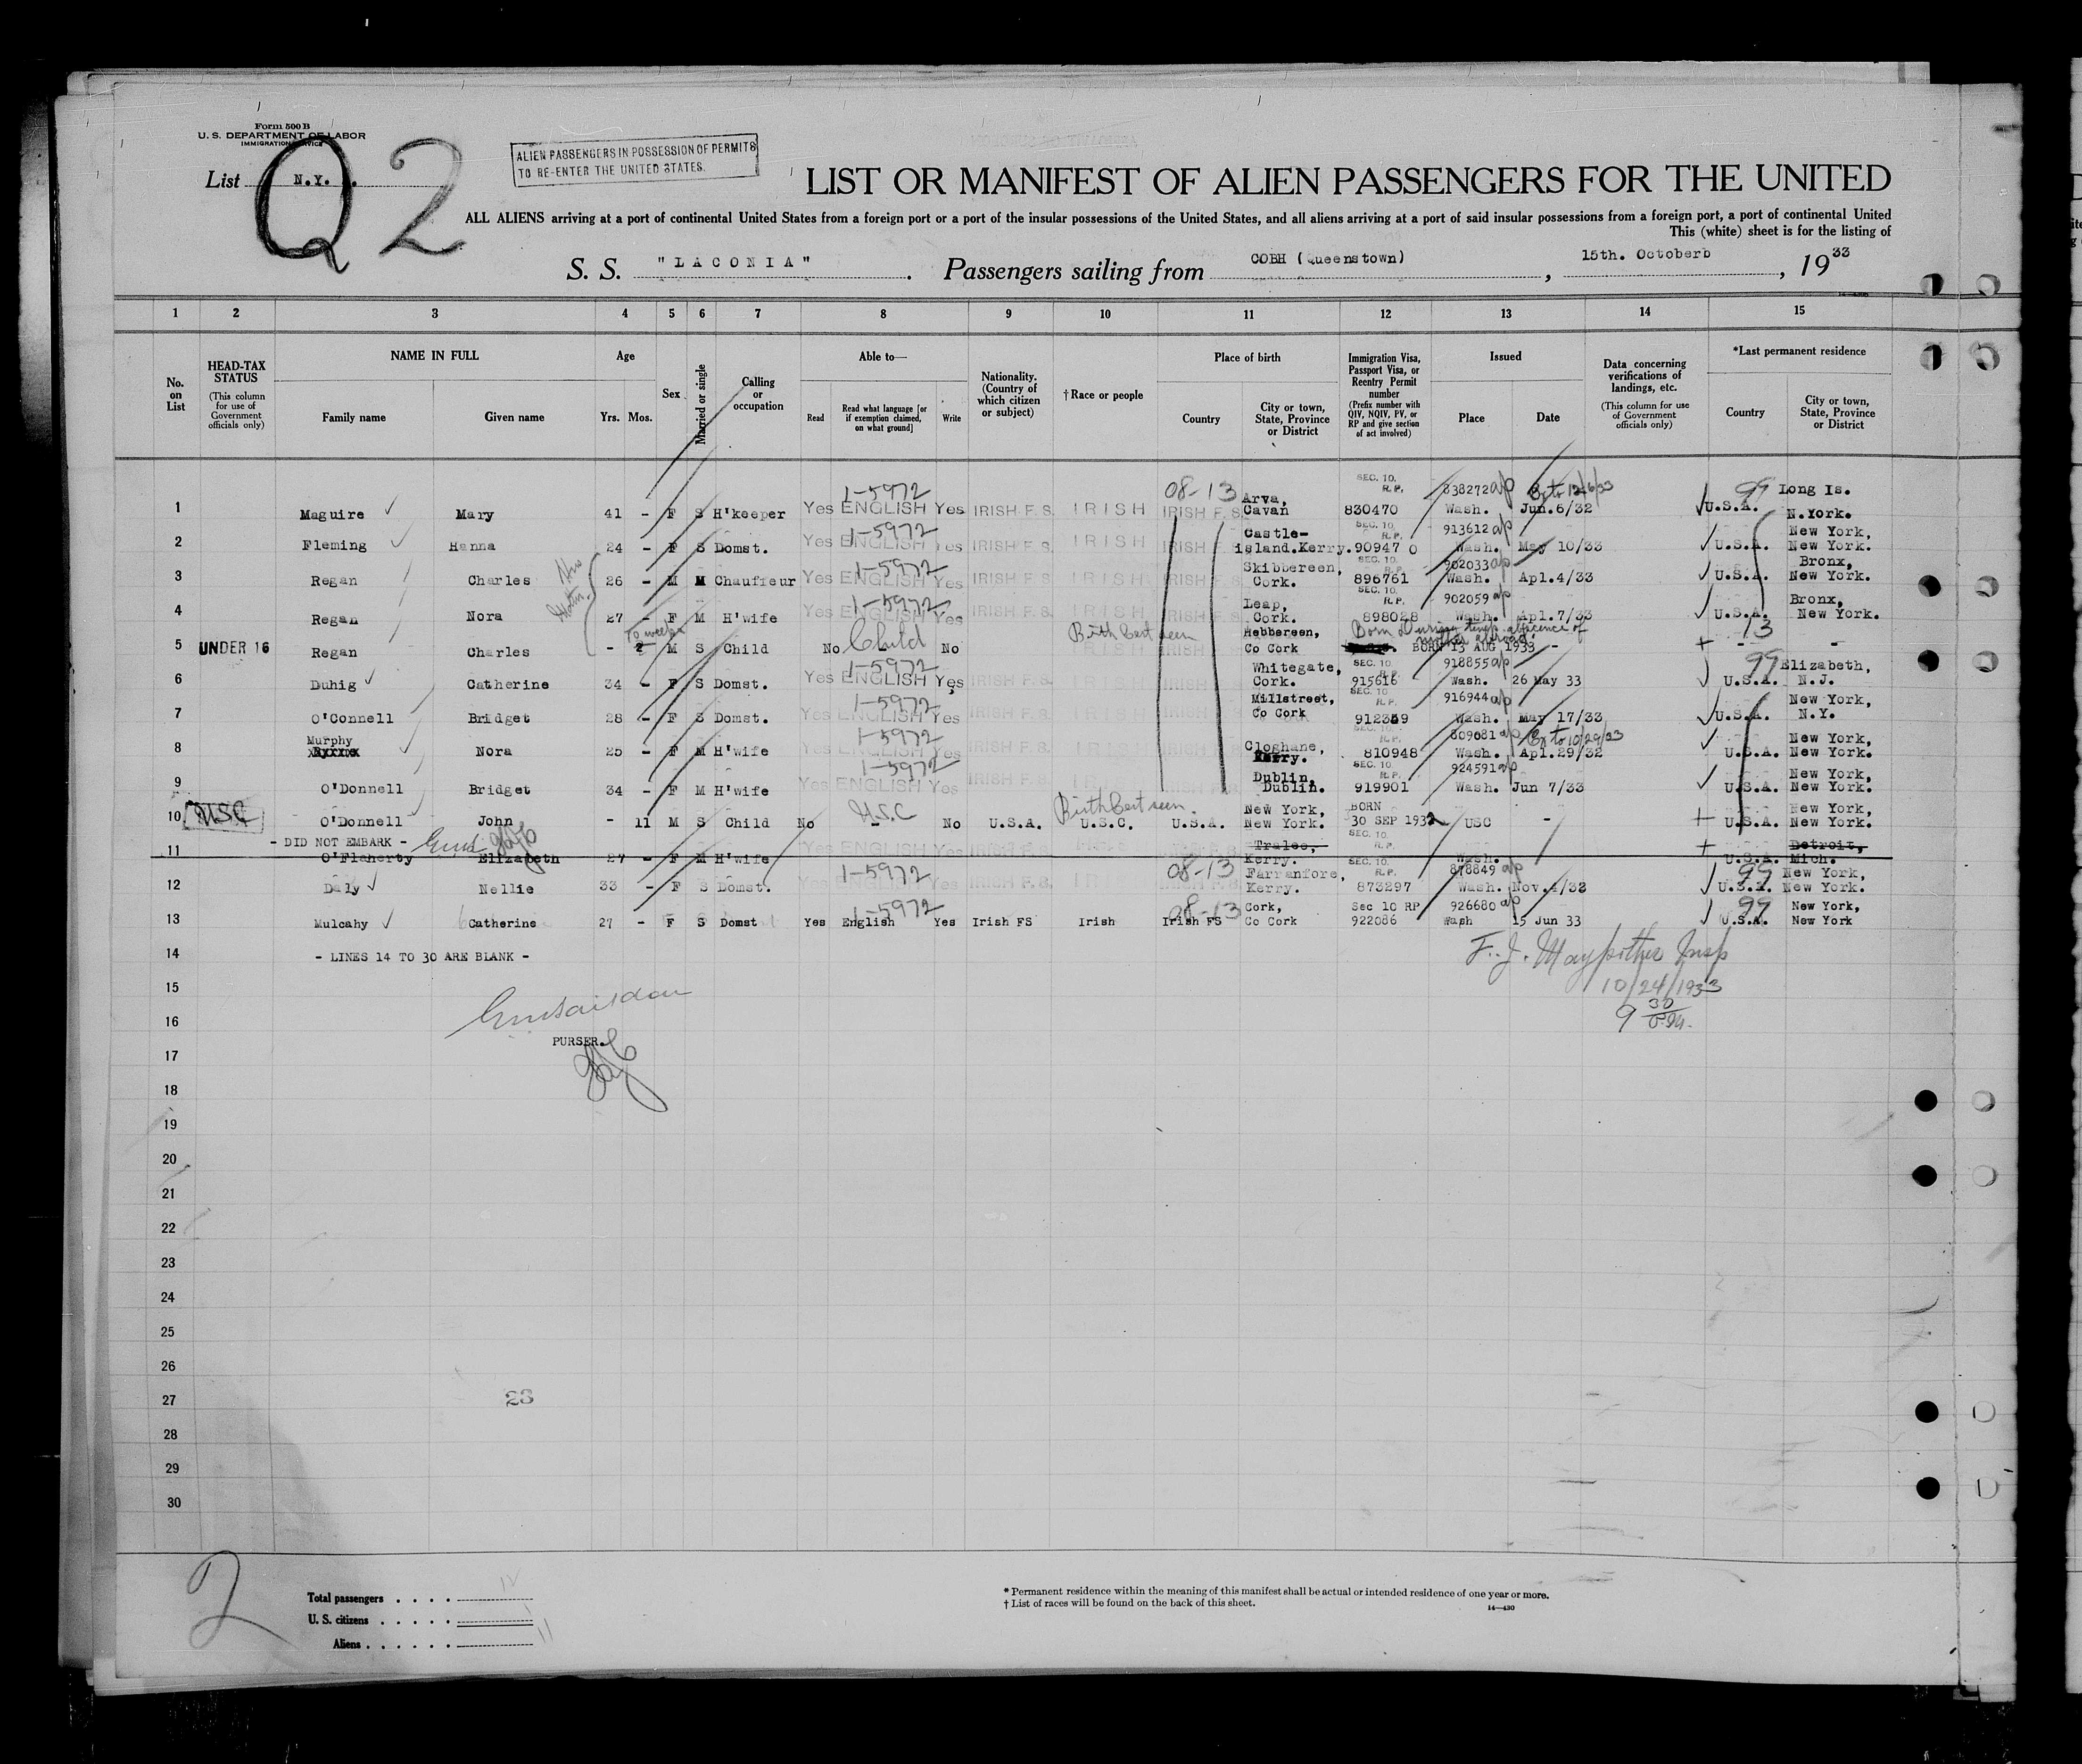 Form 500 B
U. S. DEPARTMENT OF LABOR
IMMIGRATION SERVICE
List N.Y.
Q2
ALIEN PASSENGERS IN POSSESSION OF PERMITS
TO RE-ENTER THE UNITED STATES.
LIST OR MANIFEST OF ALIEN PASSENGERS FOR THE UNITED
ALL ALIENS arriving at a port of continental United States from a foreign port or a port of the insular possessions of the United States, and all aliens arriving at a port of said insular possessions from a foreign port, a port of continental United
This (white) sheet is for the listing of
S. S. "LACONIA". Passengers sailing from COBH (Queenstown), 15th. Octoberb, 1933
1 2 3 4 5 6 7 8 9 10 11 12 13 14 15
No. on List
HEAD-TAX STATUS (This column for use of Government officials only)
NAME IN FULL Family name Given name
Age Yrs. Mos.
Sex
Married or single
Calling or occupation
Able to— Read Read what language [or if exemption claimed, on what ground] Write
Nationality. (Country of which citizen or subject)
†Race or people
Place of birth Country City or town, State, Province or District
Immigration Visa, Passport Visa, or Reentry Permit number (Prefix number with QIV, NQIV, PV, or RP and give section of act involved)
Issued Place Date
Data concerning verifications of landings, etc. (This column for use of Government officials only)
*Last permanent residence Country City or town, State, Province or District
1-5972 08-13 SEC. 10. R.P. 838272 99 Long Is.
1 Maguire Mary 41 - F S H'keeper Yes ENGLISH Yes IRISH F.S. IRISH IRISH F.S. Arva, Cavan 830470 Wash. Jun.6/32 U.S.A. N.York.
1-5972 SEC. 10. R.P. 913612
2 Fleming Hanna 24 - F S Domst. Yes ENGLISH Yes IRISH F.S. IRISH IRISH Castle-island.Kerry. 90947 0 Wash. May 10/33 U.S.A. New York, New York.
1-5972 SEC. 10. R.P. 902033
3 Regan Charles 26 - M M Chauffeur Yes ENGLISH Yes IRISH F.S. IRISH Skibbereen, Cork. 896761 Wash. Apl.4/33 U.S.A. Bronx, New York.
1-5972 SEC. 10. R.P. 902059
4 Regan Nora 27 - F M H'wife Yes ENGLISH Yes IRISH F.S. IRISH Leap, Cork. 898028 Wash. Apl.7/33 U.S.A. Bronx, New York.
Birth Cert seen Born During temp absence of mother abroad. 13
5 UNDER 16 Regan Charles - 2 M S Child No Child No IRISH Hebbereen, Co Cork BORN 13 AUG 1933 - + - -
1-5972 SEC. 10. R.P. 918855 99
6 Duhig Catherine 34 - F S Domst. Yes ENGLISH Yes IRISH F.S. IRISH Whitegate, Cork. 915616 Wash. 26 May 33 U.S.A. Elizabeth, N.J.
1-5972 SEC. 10 R.P. 916944
7 O'Connell Bridget 28 - F S Domst. Yes ENGLISH Yes IRISH F.S. IRISH Millstreet, Co Cork 912359 Wash. May 17/33 U.S.A. New York, N.Y.
1-5972 SEC. 10. R.P. 809081 Ex to 10/29/33
8 Murphy Nora 25 - F M H'wife Yes ENGLISH Yes IRISH F.S. IRISH Cloghane, Kerry. 810948 Wash. Apl.29/32 U.S.A. New York, New York.
1-5972 SEC. 10. R.P. 924591
9 O'Donnell Bridget 34 - F M H'wife Yes ENGLISH Yes IRISH F.S. IRISH Dublin, Dublin. 919901 Wash. Jun 7/33 U.S.A. New York, New York.
USC Birth Cert seen.
10 USC O'Donnell John - 11 M S Child No - No U.S.A. U.S.C. U.S.A. New York, New York. BORN 30 SEP 1932 USC - + U.S.A. New York, New York.
- DID NOT EMBARK -
11 O'Flaherty Elizabeth 27 - F M H'wife Yes ENGLISH Yes IRISH F.S. IRISH Tralee, Kerry. SEC. 10. R.P. Wash. + U.S.A. Detroit, Mich.
1-5972 08-13 SEC. 10. R.P. 878849 99
12 Daly Nellie 33 - F S Domst. Yes ENGLISH Yes IRISH F.S. IRISH Farranfore, Kerry. 873297 Wash. Nov.4/32 U.S.A. New York, New York.
1-5972 08-13 Sec 10 RP 926680 99
13 Mulcahy Catherine 27 - F S Domst Yes English Yes Irish FS Irish Irish FS Cork, Co Cork 922086 Wash 15 Jun 33 U.S.A. New York, New York
14 - LINES 14 TO 30 ARE BLANK -
15
10/24/1933
16
9 30
PURSER.
17
18
19
20
21
22
23
24
25
26
27
23
28
29
30
2
Total passengers
U. S. citizens
Aliens 11
* Permanent residence within the meaning of this manifest shall be actual or intended residence of one year or more.
† List of races will be found on the back of this sheet.
14—430